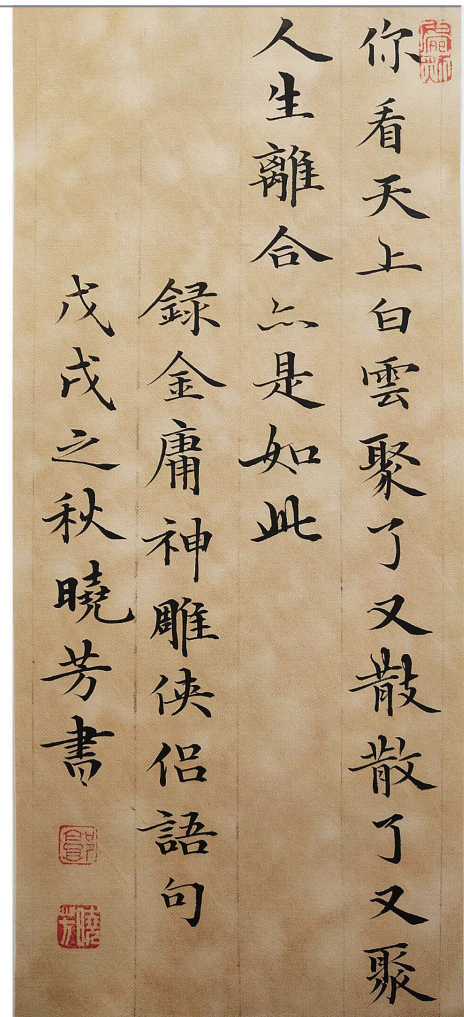 你看天上白雲聚了又散散了又聚
人生離合亦是如此
録金庸神雕俠侣語句
戊戌之秋曉芳書
曉芳